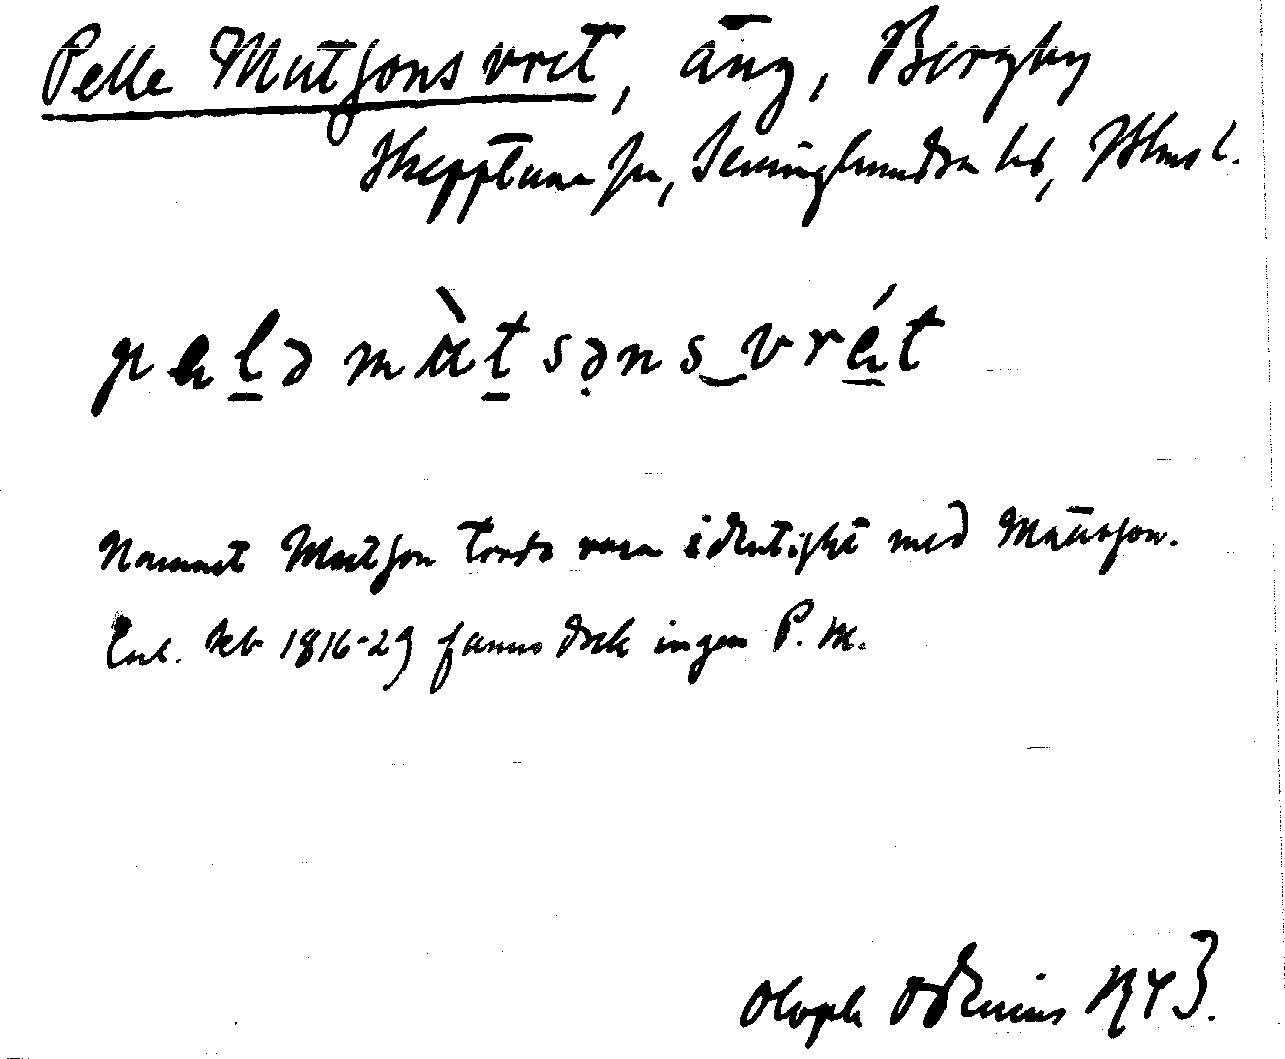 Pelle Matsons vret, äng, Bergby
Skepptuna sn, Seminghundra hd, Sthms l.
pelə màtsəns‿vrét
Namnet Matson torde vara identiskt med Mattsson.
Enl. kb 1816-29 fanns dock ingen P. M.
Oloph Odenius 1943.